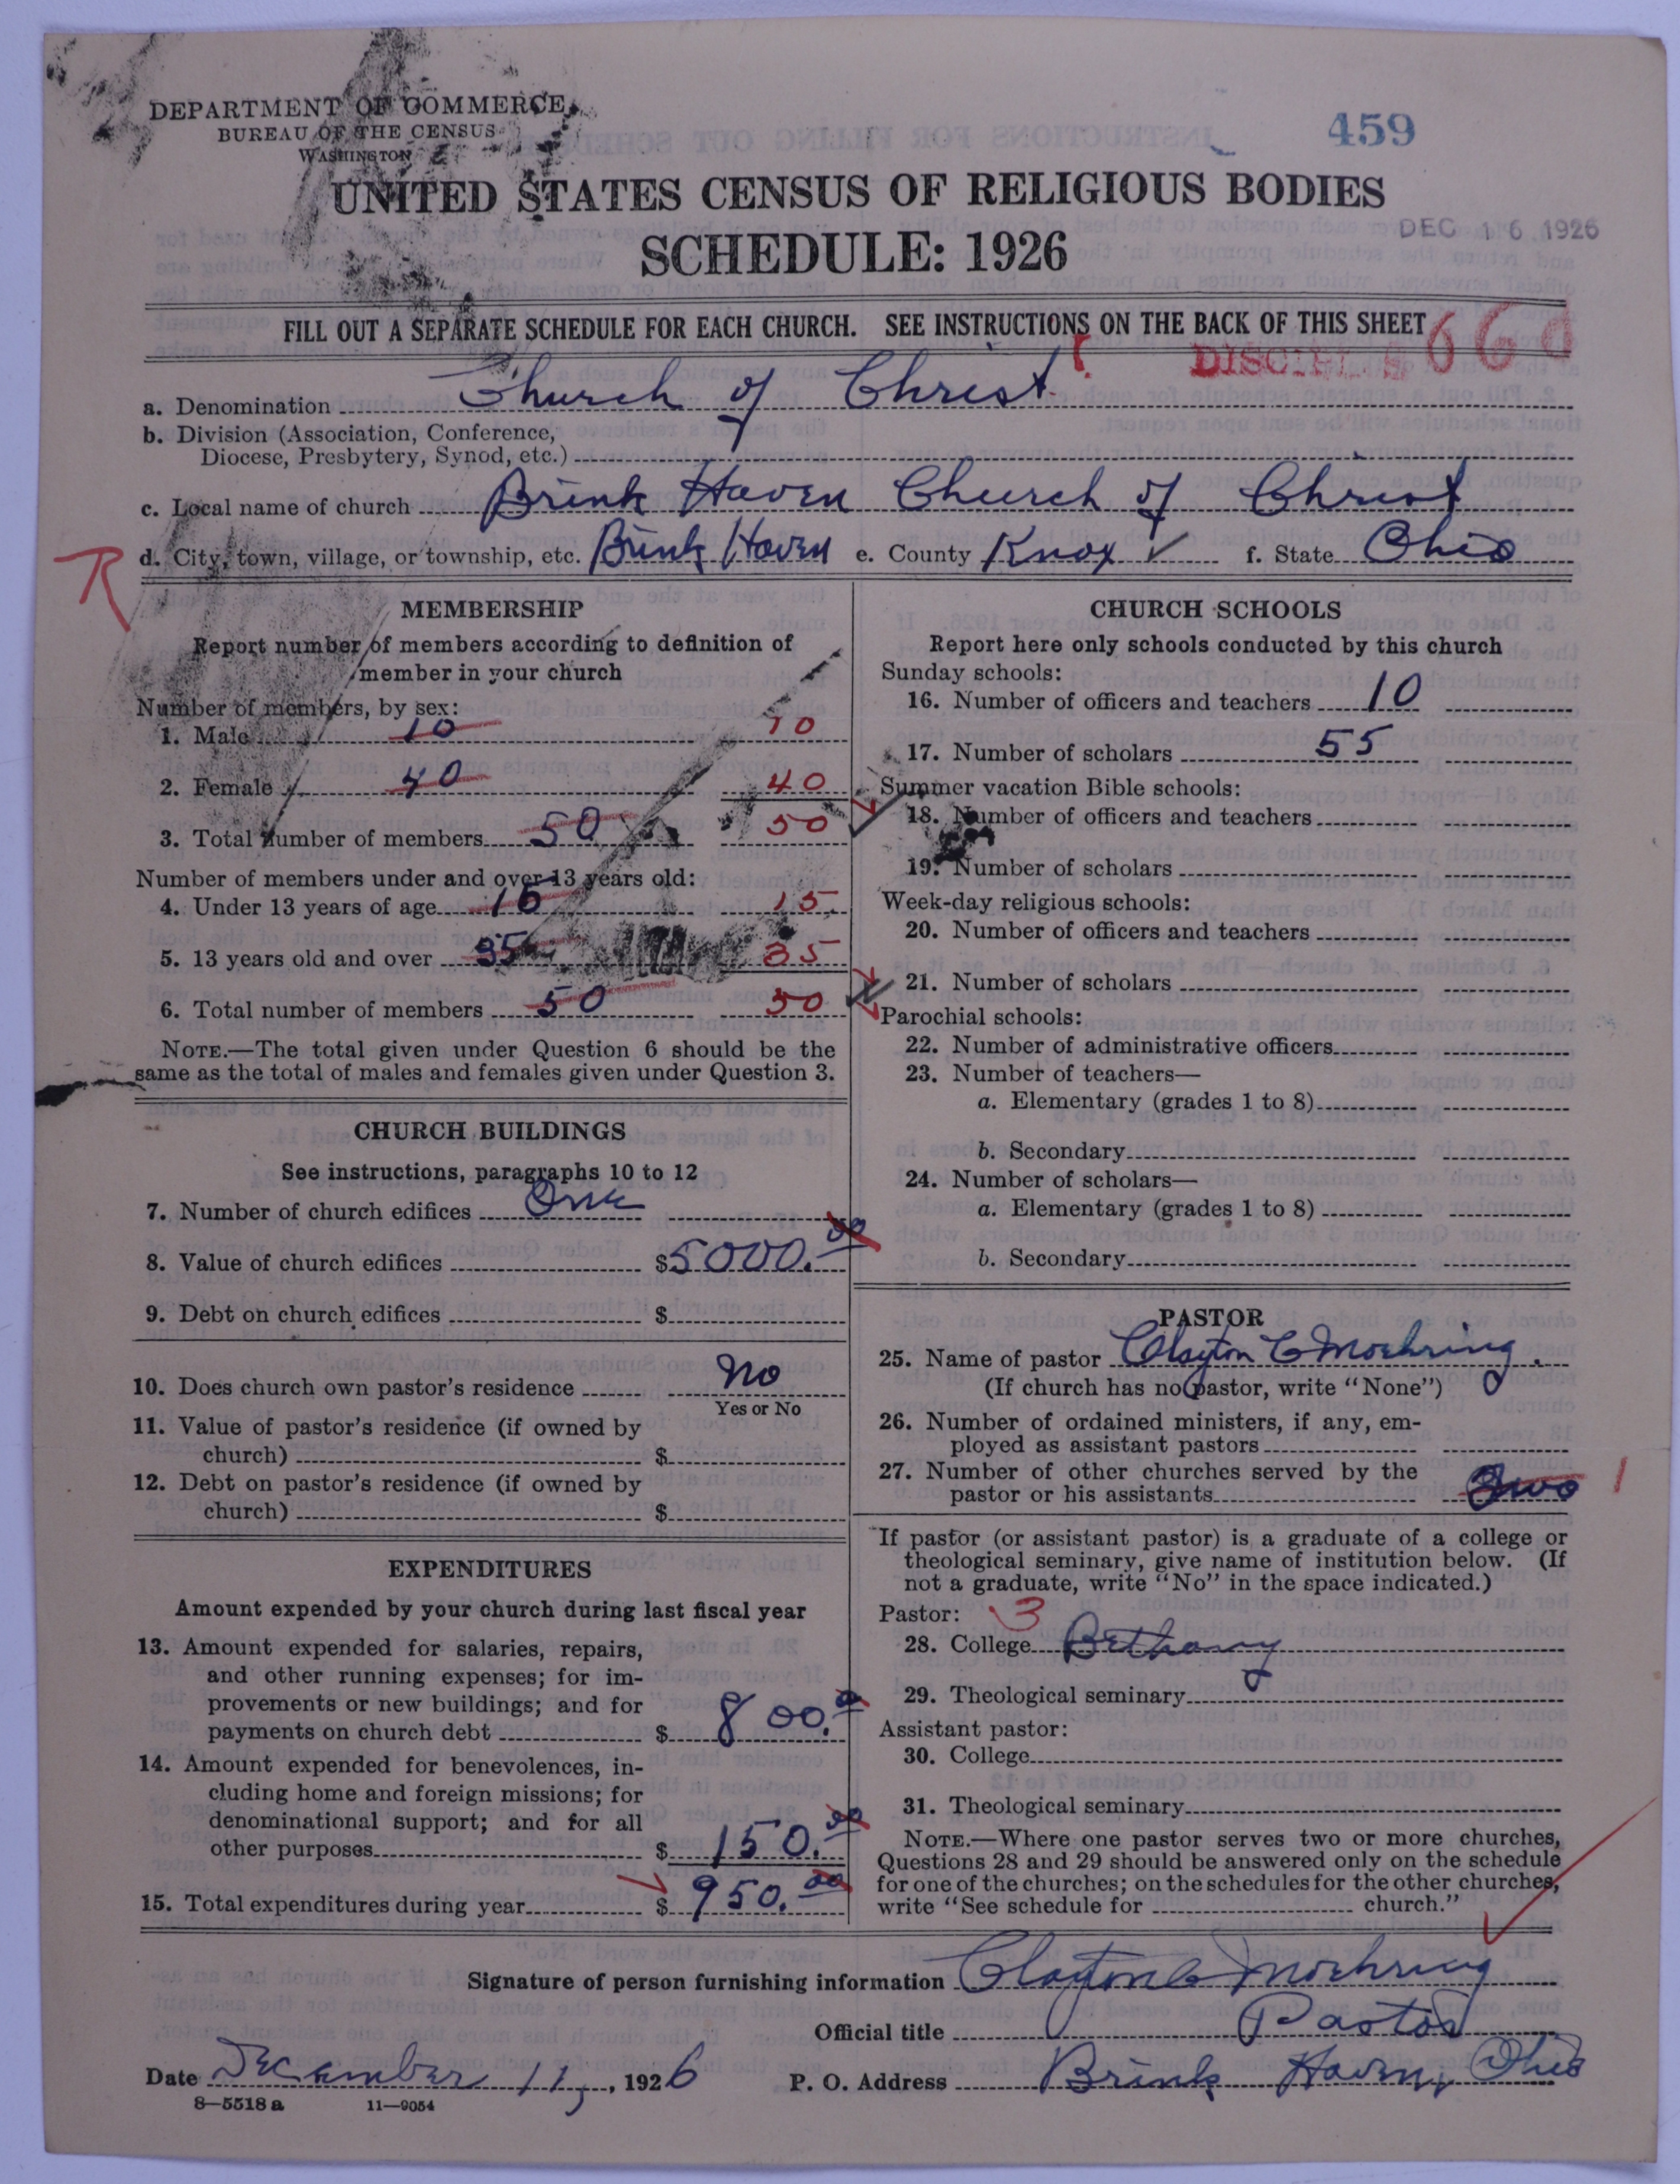 DEPARTMENT OF COMMERCE
BUREAU OF THE CENSUS
WASHINGTON
459
UNITED STATES CENSUS OF RELIGIOUS BODIES
SCHEDULE: 1926
DEC 16 1926
FILL OUT A SEPARATE SCHEDULE FOR EACH CHURCH. SEE INSTRUCTIONS ON THE BACK OF THIS SHEET
a. Denomination Church of Christ
b. Division (Association, Conference,
Diocese, Presbytery, Synod, etc.)
c. Local name of church Brink Haven Church of Christ
d. City, town, village, or township, etc. Brink Haven e. County Knox ✓ f. State Ohio
MEMBERSHIP
Report number of members according to definition of
member in your church
Number of members, by sex:
1. Male 10 10
2. Female 40 40
3. Total number of members 50 50
Number of members under and over 13 years old:
4. Under 13 years of age 15 15
5. 13 years old and over 35 35
6. Total number of members 50 50
NOTE.—The total given under Question 6 should be the
same as the total of males and females given under Question 3.
CHURCH BUILDINGS
See instructions, paragraphs 10 to 12
7. Number of church edifices One
8. Value of church edifices $5000.00
9. Debt on church edifices $
10. Does church own pastor's residence No
Yes or No
11. Value of pastor's residence (if owned by
church) $
12. Debt on pastor's residence (if owned by
church) $
EXPENDITURES
Amount expended by your church during last fiscal year
13. Amount expended for salaries, repairs,
and other running expenses; for im-
provements or new buildings; and for
payments on church debt $ 800.00
14. Amount expended for benevolences, in-
cluding home and foreign missions; for
denominational support; and for all
other purposes $ 150.00
15. Total expenditures during year $ 950.00
CHURCH SCHOOLS
Report here only schools conducted by this church
Sunday schools:
16. Number of officers and teachers 10
17. Number of scholars 55
Summer vacation Bible schools:
18. Number of officers and teachers
19. Number of scholars
Week-day religious schools:
20. Number of officers and teachers
21. Number of scholars
Parochial schools:
22. Number of administrative officers
23. Number of teachers—
a. Elementary (grades 1 to 8)
b. Secondary
24. Number of scholars—
a. Elementary (grades 1 to 8)
b. Secondary
PASTOR
25. Name of pastor Clayton C Moehring.
(If church has no pastor, write "None")
26. Number of ordained ministers, if any, em-
ployed as assistant pastors
27. Number of other churches served by the
pastor or his assistants Two 1
If pastor (or assistant pastor) is a graduate of a college or
theological seminary, give name of institution below. (If
not a graduate, write "No" in the space indicated.)
Pastor: 3
28. College Bethany
29. Theological seminary
Assistant pastor:
30. College
31. Theological seminary
NOTE.—Where one pastor serves two or more churches,
Questions 28 and 29 should be answered only on the schedule
for one of the churches; on the schedules for the other churches,
write "See schedule for church."
Signature of person furnishing information Clayton C Moehring
Official title Pastor
Date December 11, 1926 P. O. Address Brink Haven, Ohio
8—5518 a 11—9054